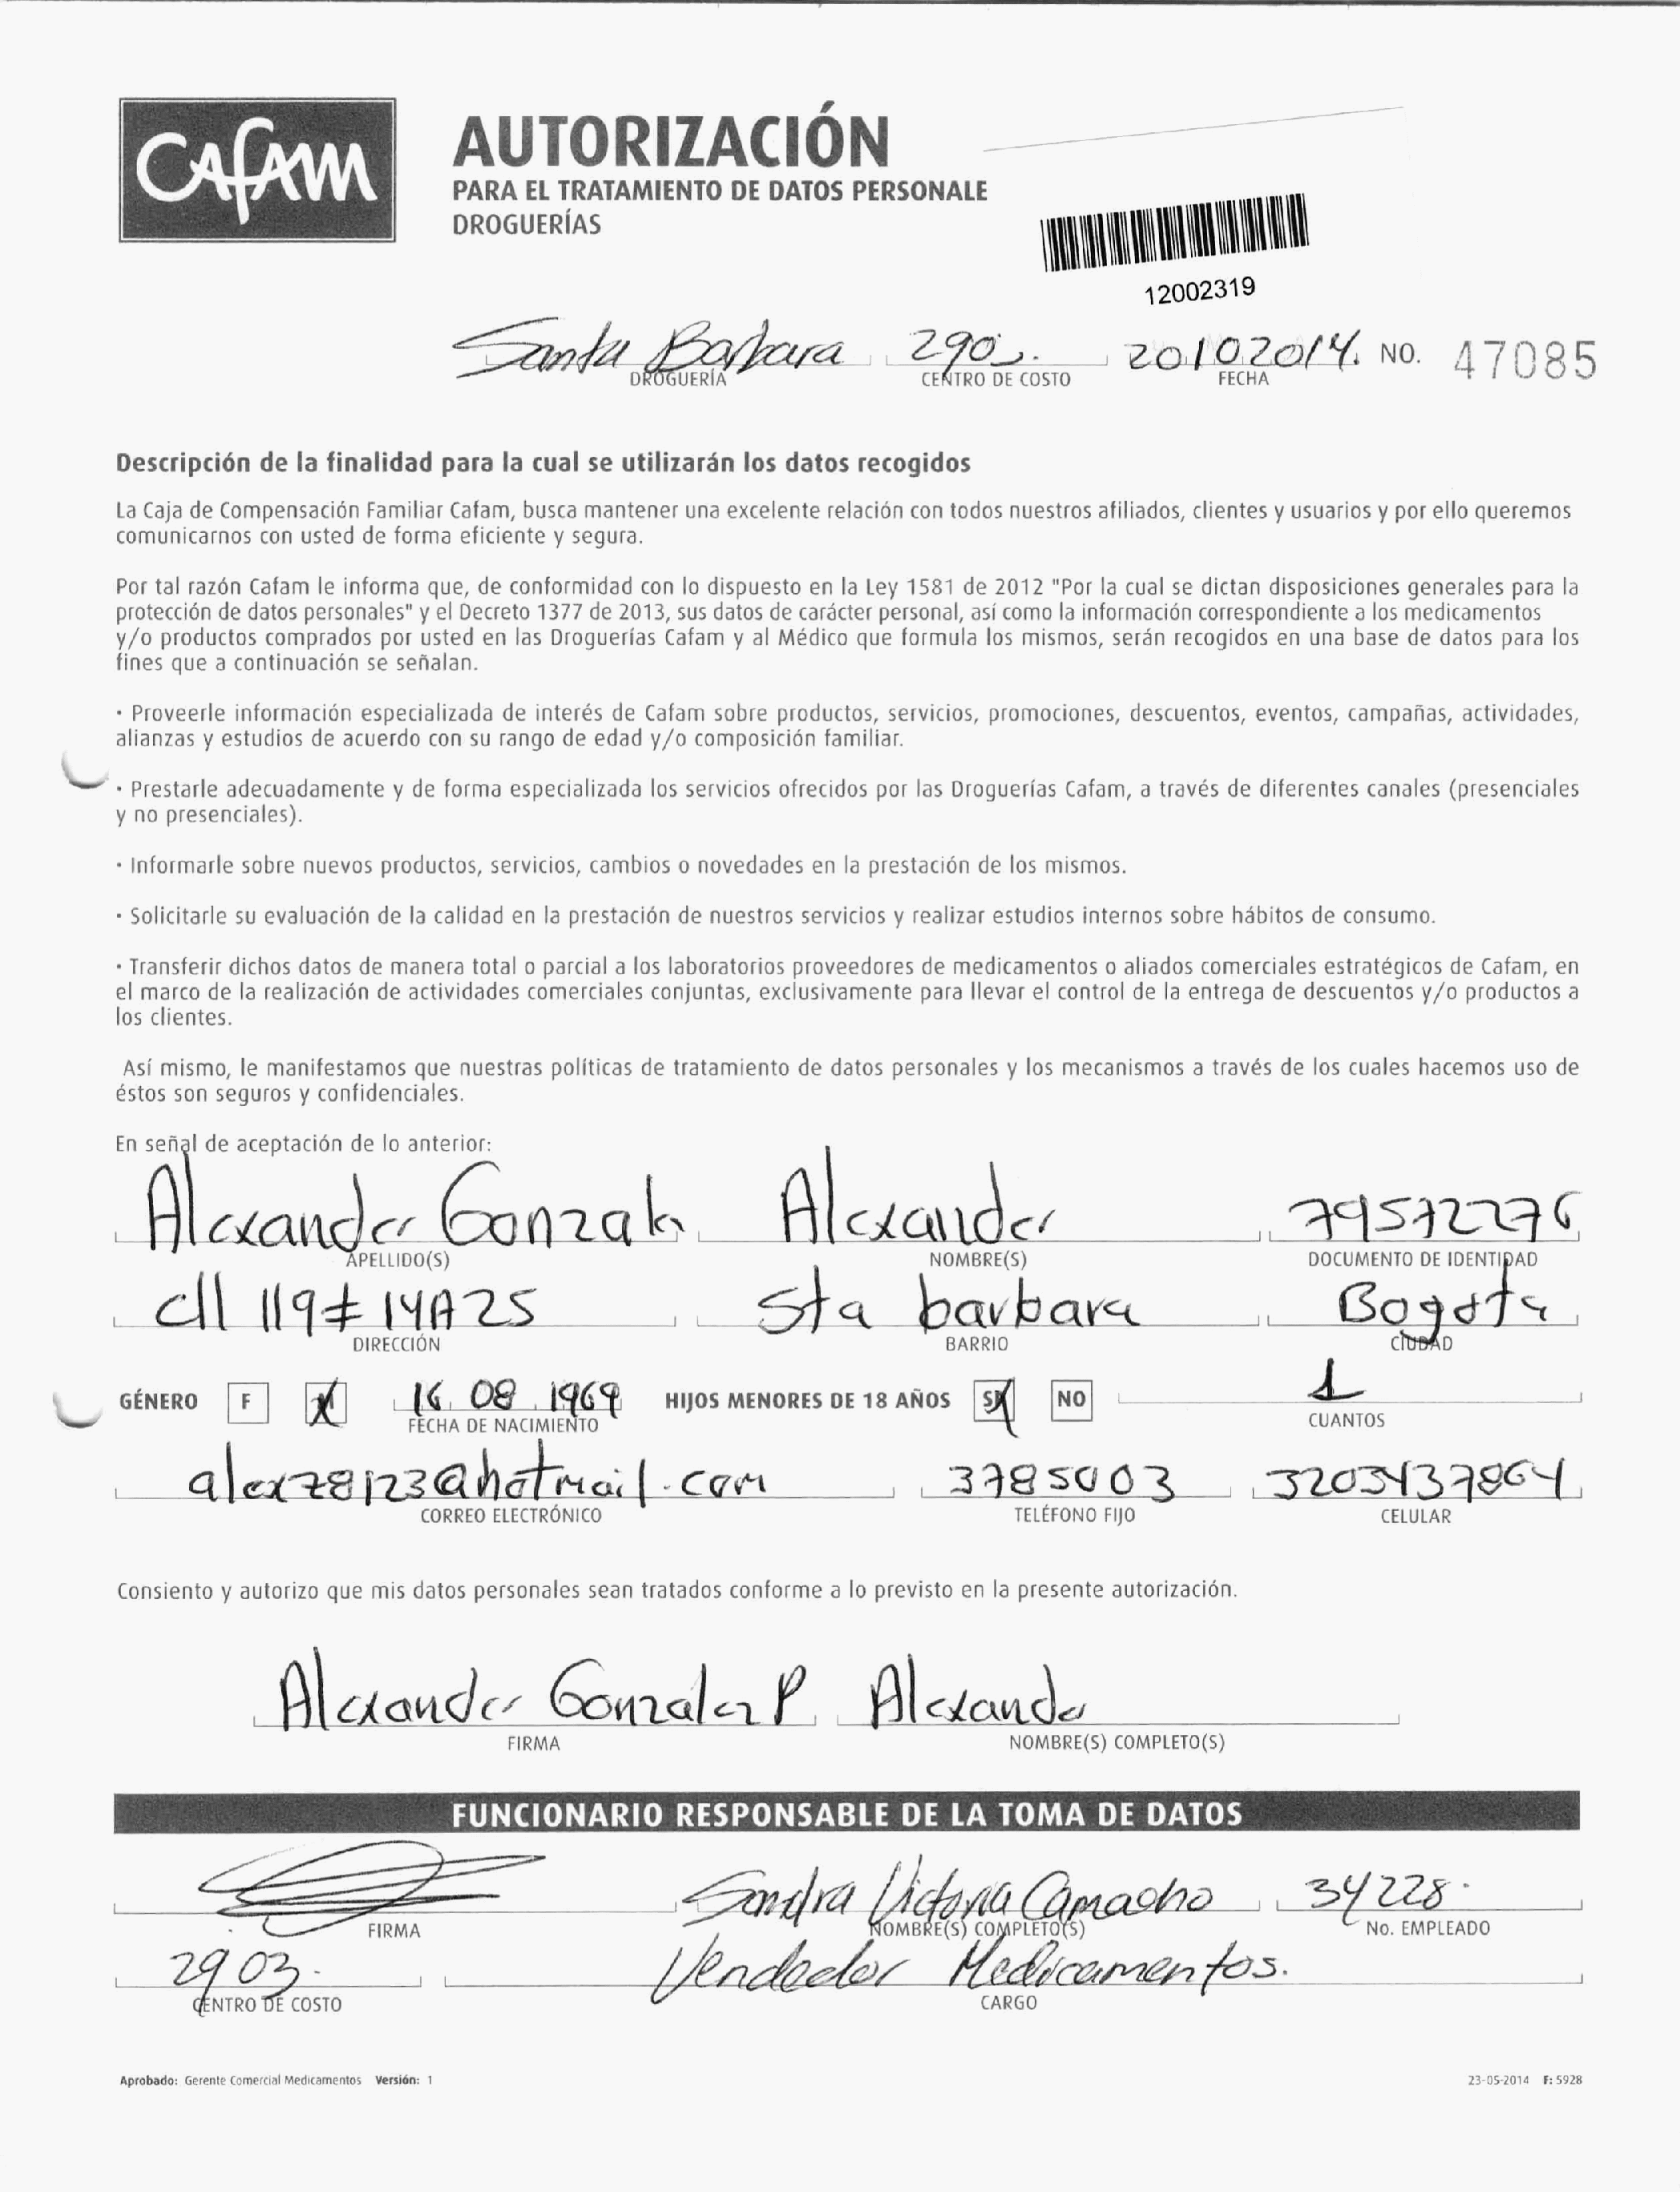 Cafam
AUTORIZACIÓN
PARA EL TRATAMIENTO DE DATOS PERSONALE
DROGUERÍAS
12002319
Santa Barbara 20102014. NO. 47085
DROGUERÍA CENTRO DE COSTO FECHA
Descripción de la finalidad para la cual se utilizarán los datos recogidos
La Caja de Compensación Familiar Cafam, busca mantener una excelente relación con todos nuestros afiliados, clientes y usuarios y por ello queremos
comunicarnos con usted de forma eficiente y segura.
Por tal razón Cafam le informa que, de conformidad con lo dispuesto en la Ley 1581 de 2012 "Por la cual se dictan disposiciones generales para la
protección de datos personales" y el Decreto 1377 de 2013, sus datos de carácter personal, así como la información correspondiente a los medicamentos
y/o productos comprados por usted en las Droguerías Cafam y al Médico que formula los mismos, serán recogidos en una base de datos para los
fines que a continuación se señalan.
· Proveerle información especializada de interés de Cafam sobre productos, servicios, promociones, descuentos, eventos, campañas, actividades,
alianzas y estudios de acuerdo con su rango de edad y/o composición familiar.
· Prestarle adecuadamente y de forma especializada los servicios ofrecidos por las Droguerías Cafam, a través de diferentes canales (presenciales
y no presenciales).
· Informarle sobre nuevos productos, servicios, cambios o novedades en la prestación de los mismos.
· Solicitarle su evaluación de la calidad en la prestación de nuestros servicios y realizar estudios internos sobre hábitos de consumo.
· Transferir dichos datos de manera total o parcial a los laboratorios proveedores de medicamentos o aliados comerciales estratégicos de Cafam, en
el marco de la realización de actividades comerciales conjuntas, exclusivamente para llevar el control de la entrega de descuentos y/o productos a
los clientes.
Así mismo, le manifestamos que nuestras políticas de tratamiento de datos personales y los mecanismos a través de los cuales hacemos uso de
éstos son seguros y confidenciales.
En señal de aceptación de lo anterior:
Alexander Gonzalez Alexander 79572276
APELLIDO(S) NOMBRE(S) DOCUMENTO DE IDENTIDAD
cll 119 # 14A25 Sta barbara Bogota
DIRECCIÓN BARRIO CIUDAD
GÉNERO F 16 08 1969 HIJOS MENORES DE 18 AÑOS SI NO 1
FECHA DE NACIMIENTO CUANTOS
alex78123@hotmail.com 3785003 3203437864
CORREO ELECTRÓNICO TELÉFONO FIJO CELULAR
Consiento y autorizo que mis datos personales sean tratados conforme a lo previsto en la presente autorización.
Alexander Gonzalez P Alexander
FIRMA NOMBRE(S) COMPLETO(S)
FUNCIONARIO RESPONSABLE DE LA TOMA DE DATOS
Sandra Victoria Camacho 34228.
FIRMA NOMBRE(S) COMPLETO(S) No. EMPLEADO
2903. Vendedor Medicamentos.
CENTRO DE COSTO CARGO
Aprobado: Gerente Comercial Medicamentos Versión: 1 23-05-2014 F: 5928